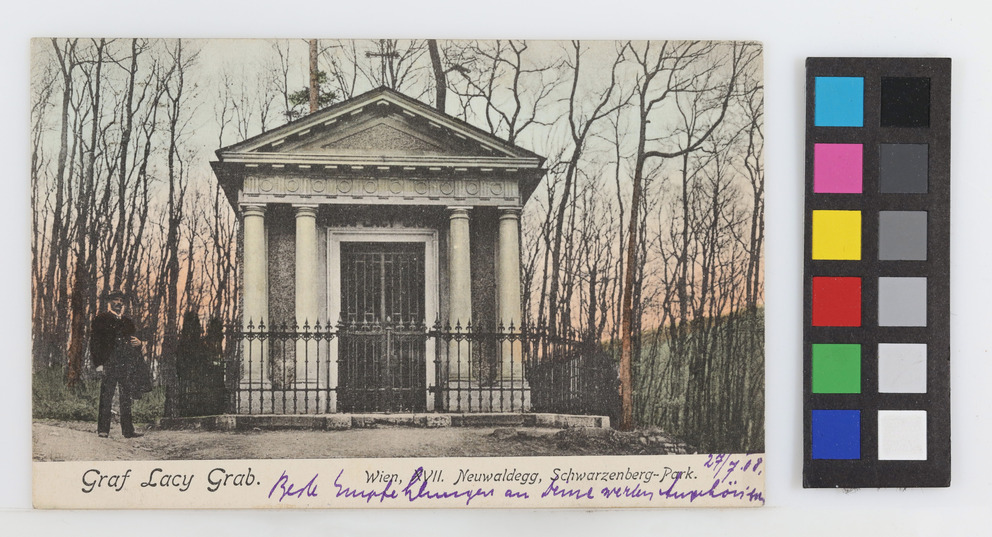 Graf Lacy Grab.
Wien, XVII. Neuwaldegg, Schwarzenberg-Park.
27/7.08.
Beste Empfehlungen an Deine werten Angehörigen